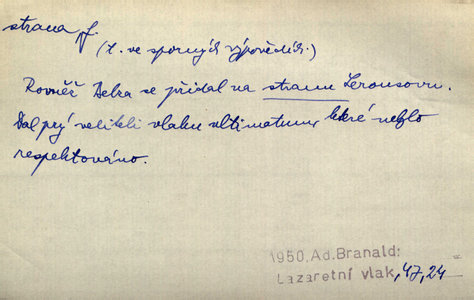 strana f.
(t. ve sporných výpovědích.)
Rovněž Delra se přidal na stranu Lerousovu.
Dal prý veliteli vlaku ultimatum, které nebylo
respektováno.
1950, Ad. Branald:
Lazaretní vlak, 47, 24